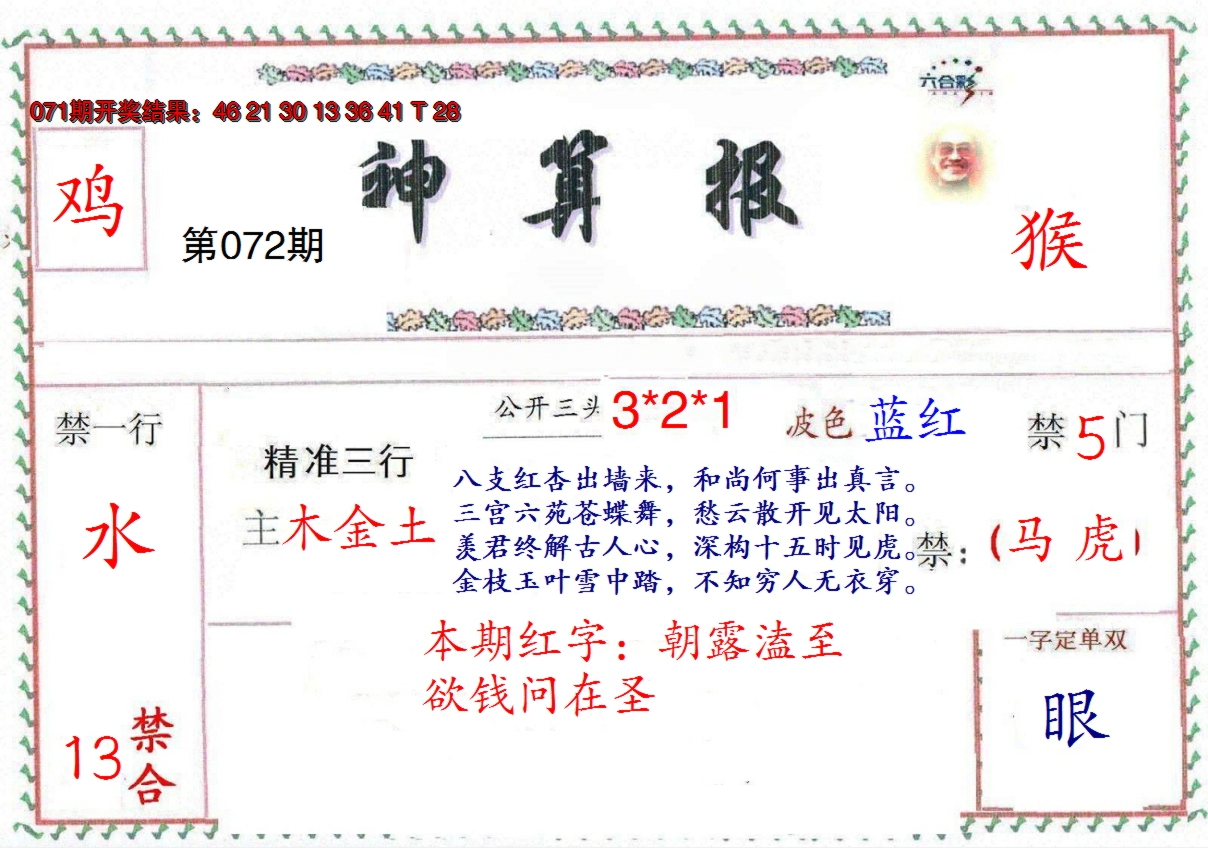 六合彩
071期开奖结果：46 21 30 13 36 41 T 28
鸡
神算报
第072期
猴
禁一行
水
13
禁合
精准三行
主木金土
公开三头 3*2*1
波色 蓝红
禁5门
八支红杏出墙来，和尚何事出真言。
三宫六苑苍蝶舞，愁云散开见太阳。
羡君终解古人心，深构十五时见虎。
金枝玉叶雪中踏，不知穷人无衣穿。
禁：(马 虎)
本期红字：朝露溘至
欲钱问在圣
一字定单双
眼